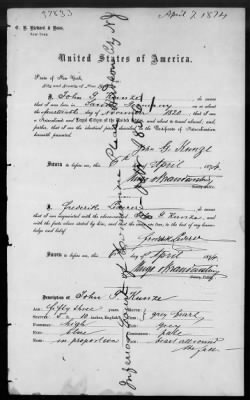 37833
April 7. 1874
C. B. Richard & Boas,
New York
United States of America.
State of New York,
City and County of New York
I, John G. Kunze do swear
that I was born in Saxony Germany
on the fourteenth day of November 1820 that I am
a Naturalized and Loyal Citizen of the United States, and about to travel abroad, and,
further, that I am the identical person described in the Certificate of Naturalization
herewith presented.
John G. Kunze
Sworn to before me, this 6th day of April 1874
Notary Public
I, Frederik do swear
that I am acquainted with the above-named John G Kunze and
with the facts above stated by him, and that the same are true, to the best of my know-
ledge and belief
Sworn to before me, this 6th day of April 1874
Notary Public
Description of John G. Kunze
Age: fifty three
Stature: 5 10 Inches, English
Forehead: high
Eyes: blue
Nose: in proportion
grey beard
grey
pale
beard all round
the face
Inferior Court of Common Pleas Hudson City NJ